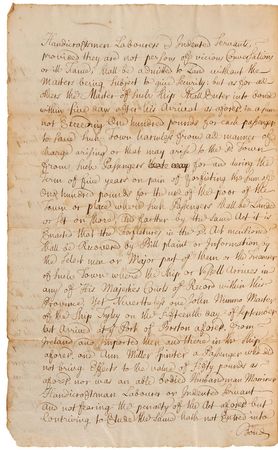 Handicraftsmen Labourers or Indented Servants,
provided they are not persons of vicious Conversations
or ill Fame, shall be admitted to Land without the
Masters being Subject to give Security. but as for all
others the Master of such Ship Shall Enter into bond
within five days after his Arrival as aforesd. to a sum
not Exceeding One hundred pounds for each passenger
to Save such Town harmless from all manner of
charge arising or that may arise to the sd Town
from such Passengers for and during the
term of five years on pain of forfeiting the sum of
One hundred pounds for the use of the poor of the
Town or place where such Passengers shall be Landed
or Set on Shore; And farther by the Said Act it is
Enacted that the Forfeitures in the sd Act mentioned
shall be Recovered by Bill plaint or Information by
the Select men or Major part of them or the treasurer
of such Town where the Ship or Vessell Arrives in
any of His Majestys Courts of Record within this
Province; Yet Nevertheless one John Master
of the Ship on the Eighteenth day of September
last Arrived at ye Port of Boston aforesd. from
Ireland and Imported then and there in his Ship
aforesd. one Ann Miller Spinster a Passenger who did
not bring Effects to the value of fifty pounds as
aforesd nor was an able bodied Husbandman Mariner
Handicraftsman Labourer or Indented Servant
And not fearing the penalty of the Act aforesd but
Contriving to Elude the Same hath not Entred into
Bond